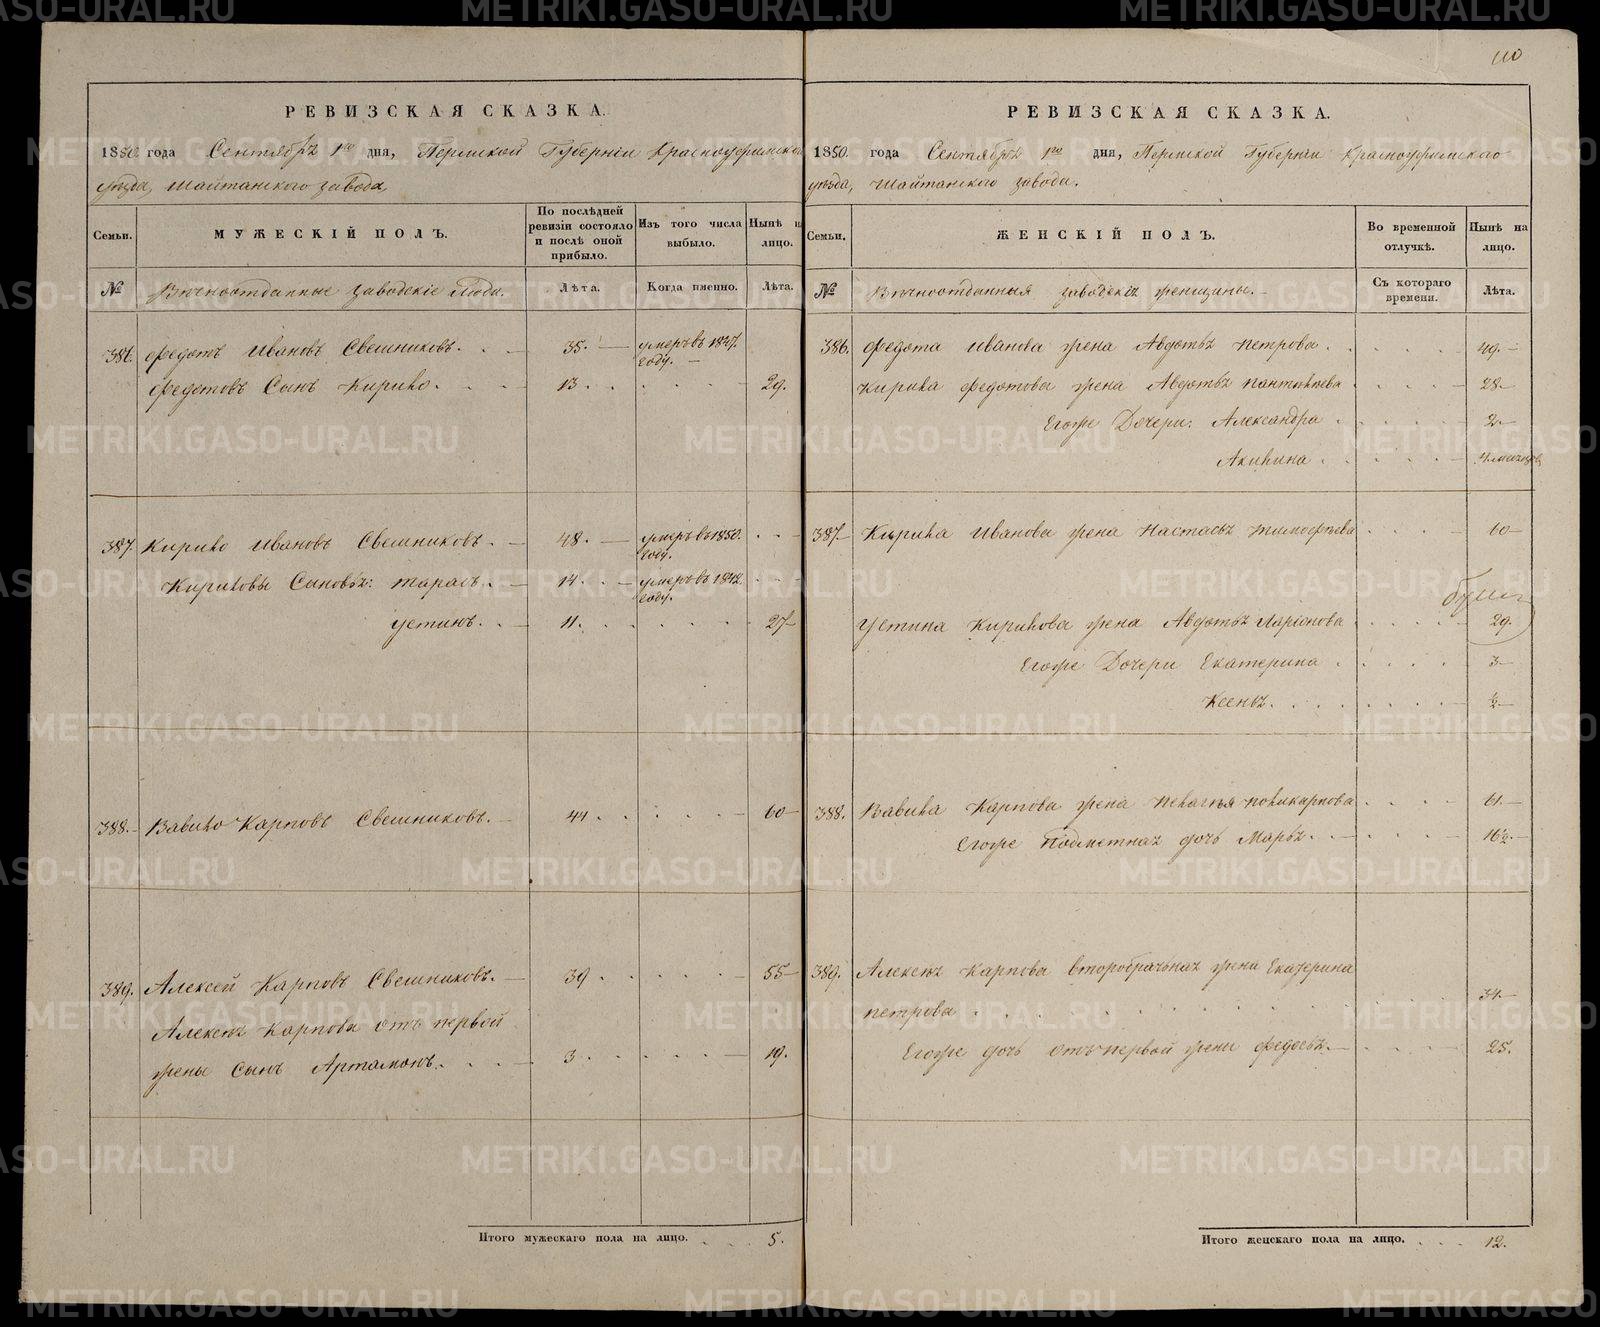 110
РЕВИЗСКАЯ СКАЗКА.
1850 года Сентября 1го дня, Пермской Губернiи Красноуфимского
уѣзда, Шайтанского завода,
Семьи.
МУЖЕСКIЙ ПОЛЪ.
По послѣдней ревизiи состояло и послѣ оной прибыло.
Изъ того числа выбыло.
Нынѣ на лицо.
№
Вѣчноотданные заводскiе люди.
Лѣта.
Когда именно.
Лѣта.
386. Федотъ Ивановъ Свешниковъ. 35. умеръ въ 1847. году.
Федотовъ Сынъ Кирико. 13. 29.
387. Кирико Ивановъ Свешниковъ. 48. умеръ въ 1850. году.
Кириковы Сыновья: Тарасъ. 14. умеръ въ 1842 году.
Устинъ. 11. 27
388. Вавило Карповъ Свешниковъ. 44 60
389. Алексей Карповъ Свешниковъ. 39 55
Алексея Карпова отъ первой
жены Сынъ Артамонъ. 3 19.
Итого мужескаго пола на лицо. 5.
РЕВИЗСКАЯ СКАЗКА.
1850. года Сентября 1го дня, Пермской Губернiи Красноуфимского
уѣзда, Шайтанского завода.
Семьи.
ЖЕНСКIЙ ПОЛЪ.
Во временной отлучкѣ.
Нынѣ на лицо.
№
Вѣчноотданныя заводскiя женщины.
Съ котораго времени.
Лѣта.
386. Федота Иванова жена Авдотья Петрова 49.
Кирика Федотова жена Авдотья Пантилѣева 28
Егоже Дочери: Александра 2
Акилина 4 месяцов
387 Кирика Иванова жена Настасья Тимофѣева 60
Устина Кирикова жена Авдотья Ларiонова 29.
Егоже Дочери Екатерина 3
Ксенья. ½
388. Вавила Карпова жена Пелагѣя Поликарпова 61.
Егоже подметная дочь Марья. 16½
389. Алексея Карпова второбрачная жена Екатерина
Петрова 34.
Егоже дочь отъ первой жены Федосья. 25.
Итого женскаго пола на лицо. 12.
METRIKI.GASO-URAL.RU